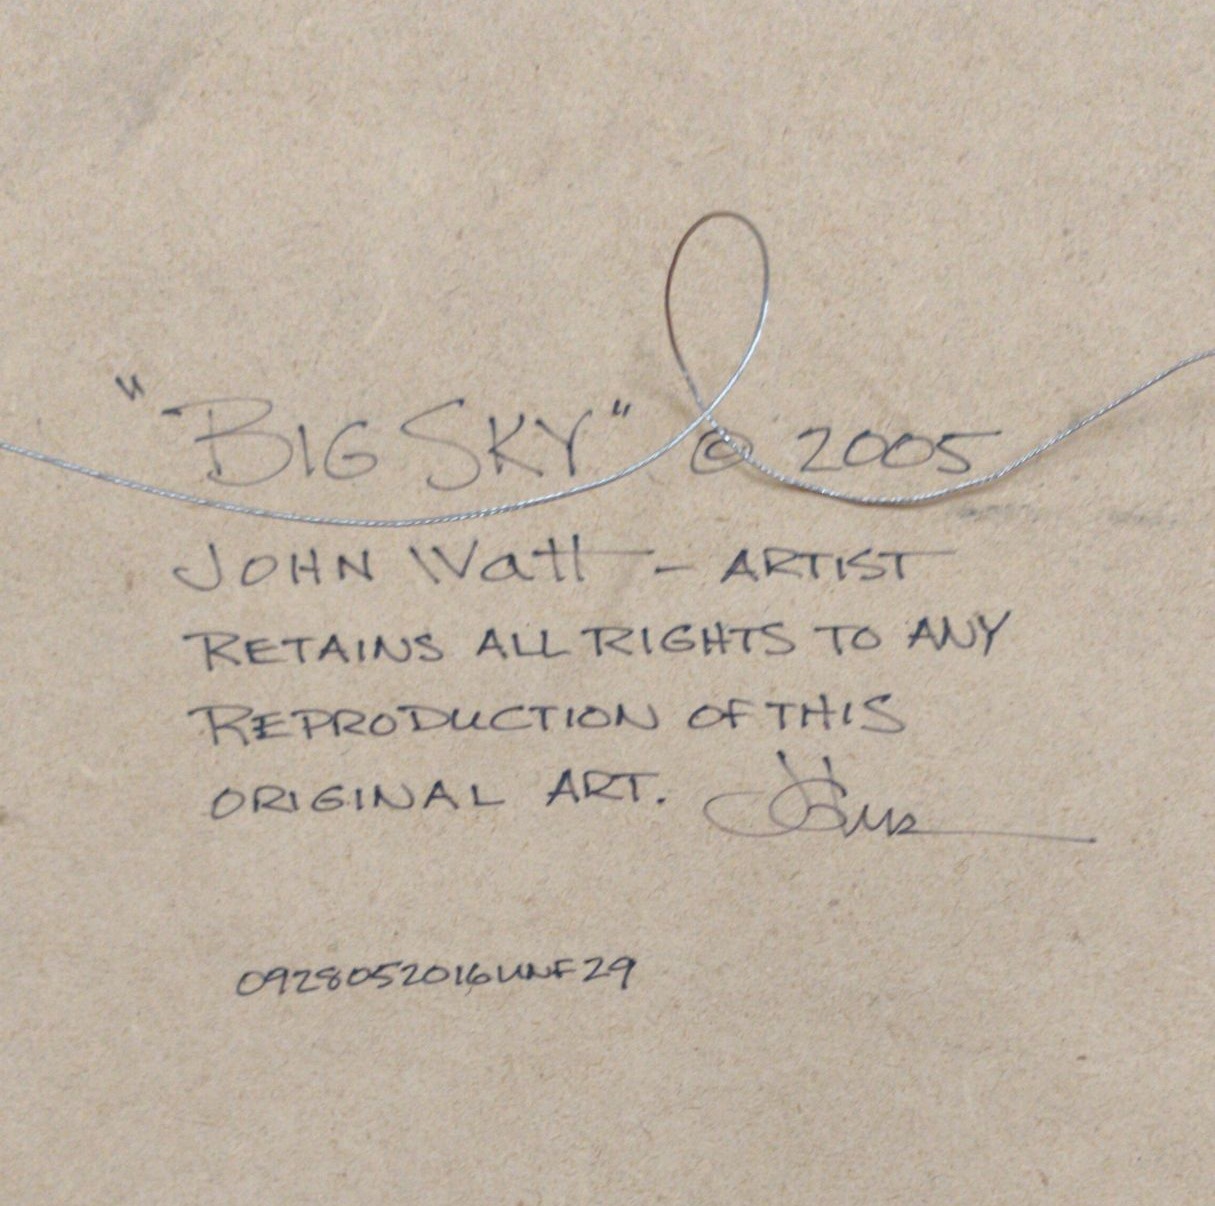 "BIG SKY" © 2005
JOHN Watt - ARTIST
RETAINS ALL RIGHTS TO ANY
REPRODUCTION OF THIS
ORIGINAL ART.
0928052016UNF29